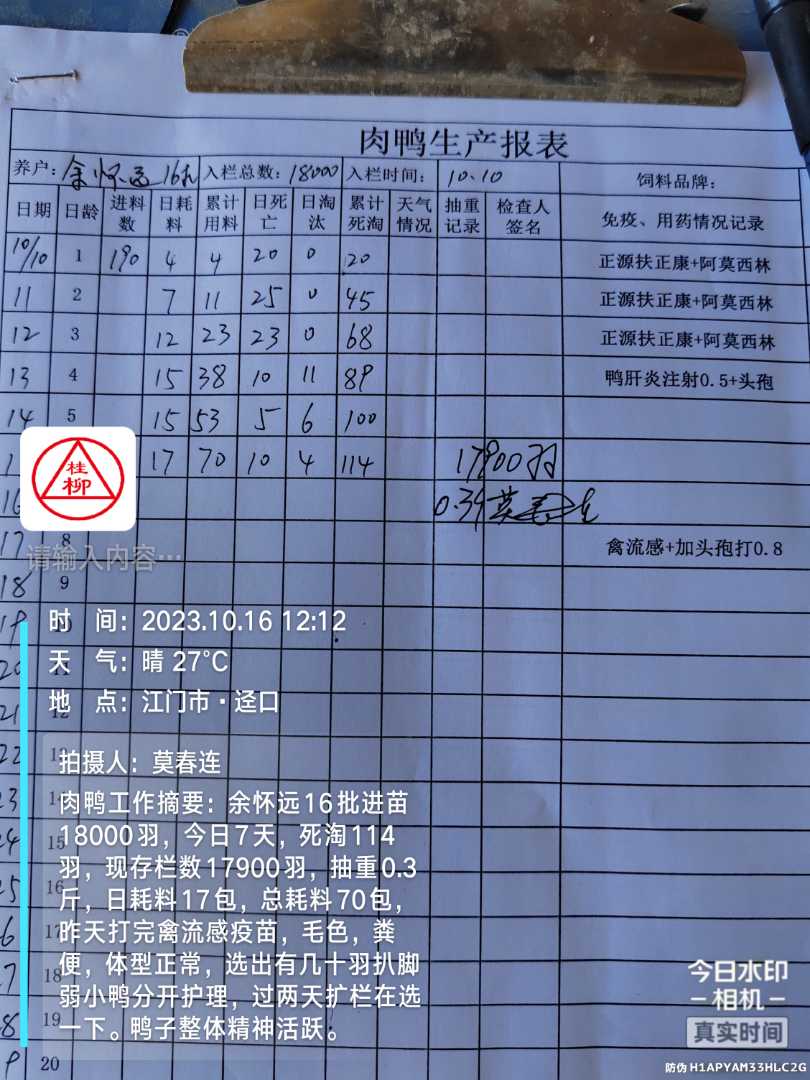 肉鸭生产报表
养户: 余怀远 16批 入栏总数: 18000 入栏时间: 10.10 饲料品牌:
日期 日龄 进料数 日耗料 累计用料 日死亡 日淘汰 累计死淘 天气情况 抽重记录 检查人签名 免疫、用药情况记录
10/10 1 190 4 4 20 0 20 正源扶正康+阿莫西林
11 2 7 11 25 0 45 正源扶正康+阿莫西林
12 3 12 23 23 0 68 正源扶正康+阿莫西林
13 4 15 38 10 11 89 鸭肝炎注射0.5+头孢
14 5 15 53 5 6 100
17 70 10 4 114 17900羽
桂柳
莫春连
17 8 禽流感+加头孢打0.8
请输入内容···
18 9
时 间: 2023.10.16 12:12
天 气: 晴 27℃
20
地 点: 江门市·迳口
21 12
22
拍摄人: 莫春连
23
肉鸭工作摘要: 余怀远16批进苗
18000羽, 今日7天, 死淘114
15
羽, 现存栏数17900羽, 抽重0.3
16
斤, 日耗料17包, 总耗料70包,
昨天打完禽流感疫苗, 毛色, 粪
便, 体型正常, 选出有几十羽扒脚
18
弱小鸭分开护理, 过两天扩栏在选
19
一下。鸭子整体精神活跃。
20
今日水印
-相机-
真实时间
防伪 H1APYAM33HLC2G